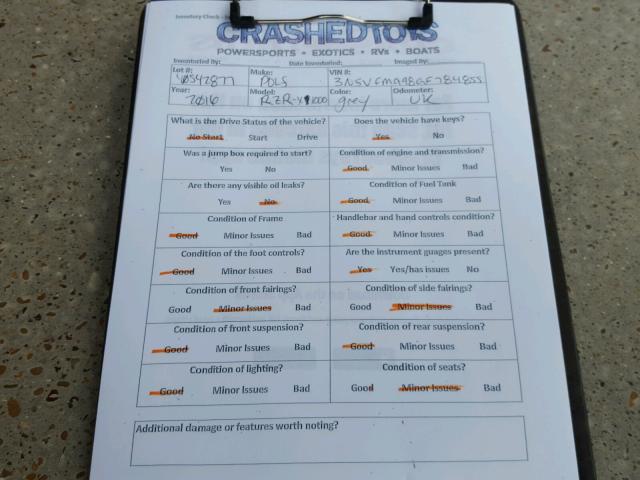 CRASHEDTOYS
POWERSPORTS • EXOTICS • RVs • BOATS
Inventoried By: Date Inventoried: Imaged By:
Lot #: Make: VIN #:
POLS
Year: Model: Color: Odometer:
2016 RZR-X 1000 grey UK
What is the Drive Status of the vehicle? Does the vehicle have keys?
No Start Start Drive Yes No
Was a jump box required to start? Condition of engine and transmission?
Yes No Good Minor Issues Bad
Are there any visible oil leaks? Condition of Fuel Tank
Yes No Good Minor Issues Bad
Condition of Frame Handlebar and hand controls condition?
Good Minor Issues Bad Good Minor Issues Bad
Condition of the foot controls? Are the instrument guages present?
Good Minor Issues Bad Yes Yes/has issues No
Condition of front fairings? Condition of side fairings?
Good Minor Issues Bad Good Minor Issues Bad
Condition of front suspension? Condition of rear suspension?
Good Minor Issues Bad Good Minor Issues Bad
Condition of lighting? Condition of seats?
Good Minor Issues Bad Good Minor Issues Bad
Additional damage or features worth noting?